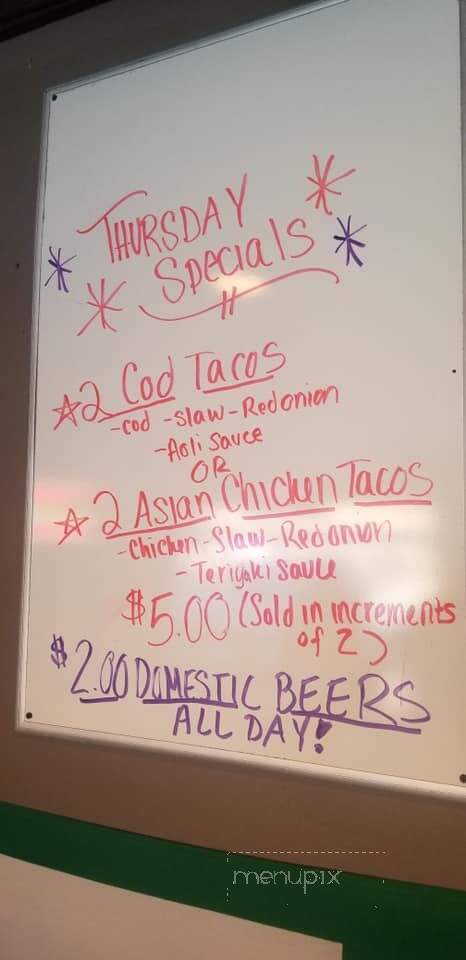 THURSDAY
Specials
2 Cod Tacos
-cod -slaw-Red onion
-Aoli sauce
OR
2 Asian Chicken Tacos
-Chicken-Slaw-Red onion
-Teriyaki sauce
$5.00 (Sold in increments
of 2)
$2.00 DOMESTIC BEERS
ALL DAY!
menupix